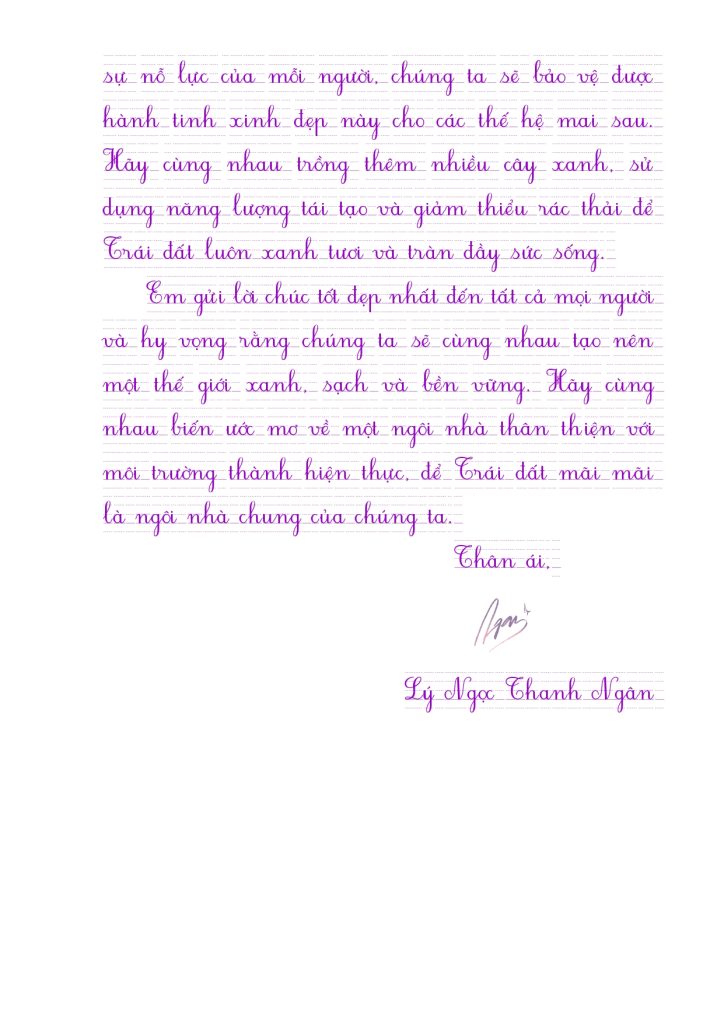 sự nỗ lực của mỗi người, chúng ta sẽ bảo vệ được
hành tinh xinh đẹp này cho các thế hệ mai sau.
Hãy cùng nhau trồng thêm nhiều cây xanh, sử
dụng năng lượng tái tạo và giảm thiểu rác thải để
Trái đất luôn xanh tươi và tràn đầy sức sống.
Em gửi lời chúc tốt đẹp nhất đến tất cả mọi người
và hy vọng rằng chúng ta sẽ cùng nhau tạo nên
một thế giới xanh, sạch và bền vững. Hãy cùng
nhau biến ước mơ về một ngôi nhà thân thiện với
môi trường thành hiện thực, để Trái đất mãi mãi
là ngôi nhà chung của chúng ta.
Thân ái,
Ngan
Lý Ngọc Thanh Ngân